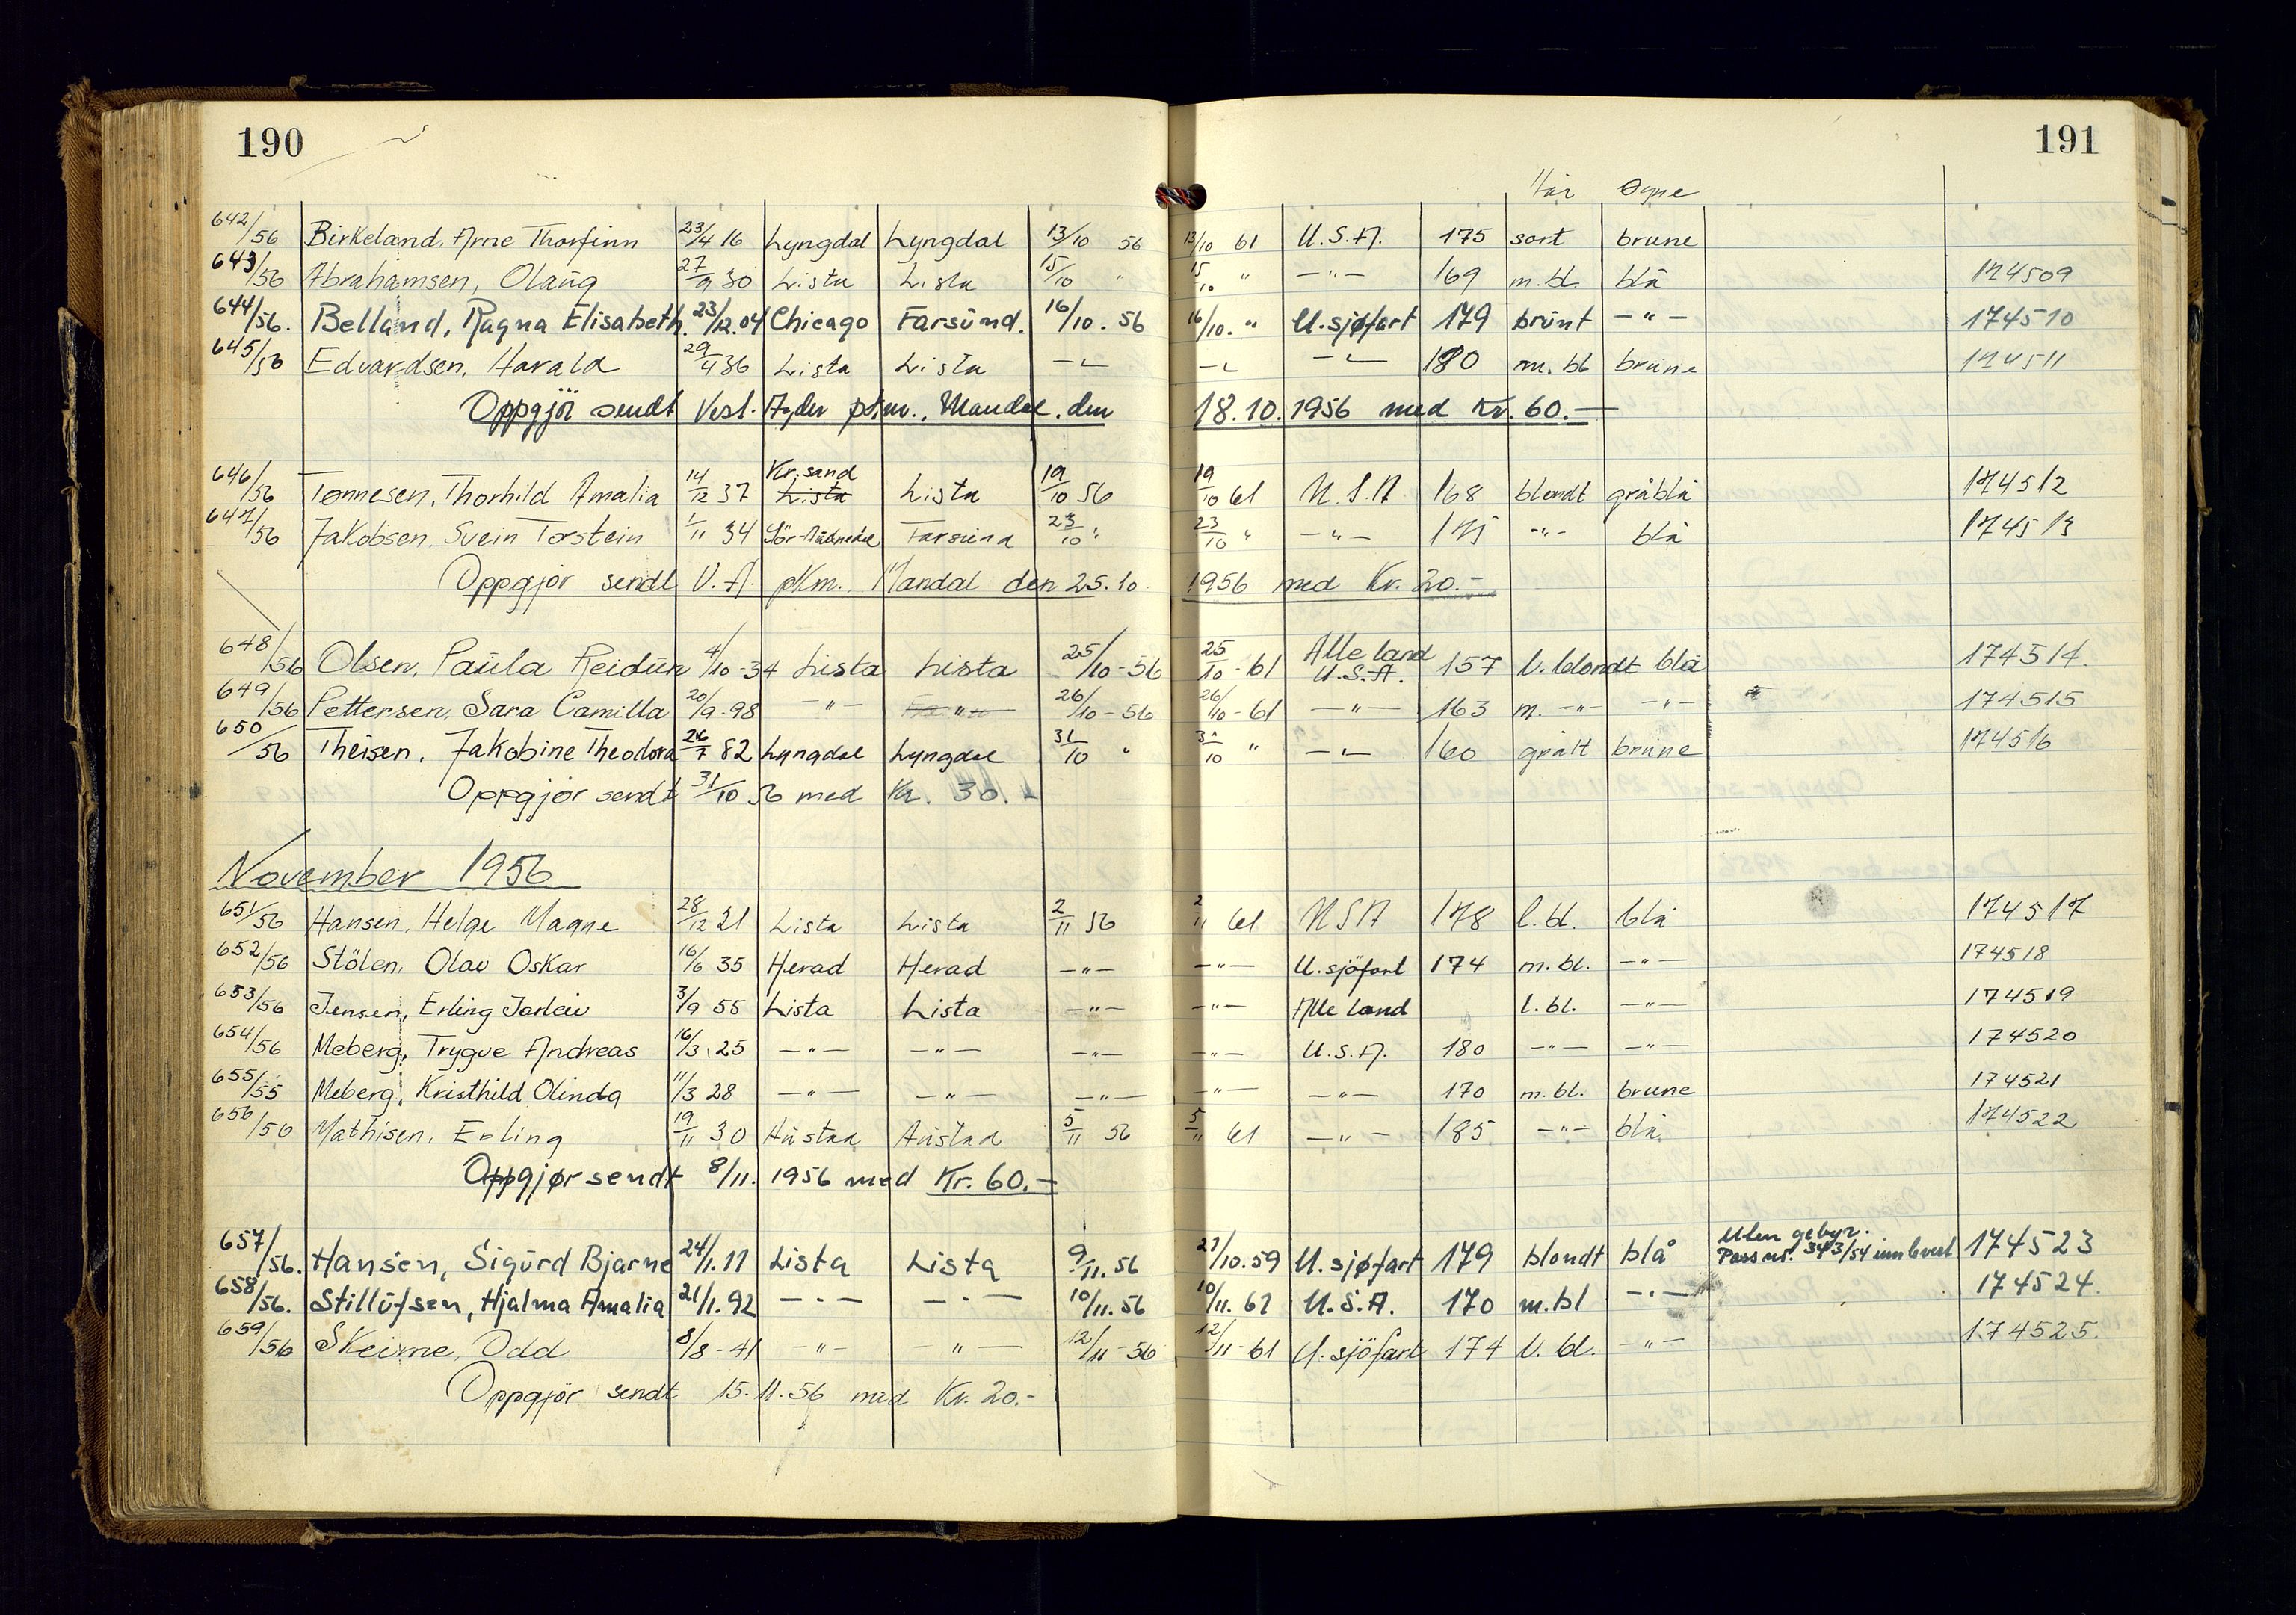 190
191
Hår Øyne
642/56 Birkeland, Arne Thorfinn 23/4 16 Lyngdal Lyngdal 13/10 56 13/10 61 U.S.A. 175 sort brune
643/56 Abrahamsen, Olaug 27/9 30 Lista Lista 15/10 " 15/10 " —"— 169 m.bl. blå 174509
644/56. Belland, Ragna Elisabeth. 23/12.04 Chicago Farsund. 16/10.56 16/10. " U.sjøfart 179 brunt —"— 174510
645/56 Edvardsen, Harald 29/4 36 Lista Lista —"— —"— —"— 180 m. bl brune 174511
Oppgjör sendt Vest-Agder pkm., Mandal, den 18.10.1956 med Kr. 60.—
646/56 Tønnesen, Thorhild Amalia 14/12 37 Kr.sand Lista Lista 19/10 56 19/10 61 U.S.A 168 blondt gråblå 174512
647/56 Jakobsen, Svein Torstein 1/11 34 Sör-Audnedal Farsund 23/10 " 23/10 " —"— 175 —"— blå 174513
Oppgjör sendt V.A. pkm., Mandal den 25.10. 1956 med Kr. 20.—
648/56 Olsen, Paula Reidun 4/10-34 Lista Lista 25/10-56 25/10-61 Alle land U.S.A. 157 l. blondt blå 174514.
649/56 Pettersen, Sara Camilla 20/9-98 —"— —"— 26/10-56 26/10-61 —"— 163 m. —"— —"— 174515
650/56 Theisen, Jakobine Theodora 26/7 82 Lyngdal Lyngdal 31/10 " 31/10 " —"— 160 grått brune 174516
Oppgjör sendt 31/10 56 med Kr. 30.—
November 1956
651/56 Hansen, Helge Magne 28/12 21 Lista Lista 2/11 56 2/11 61 USA 178 l.bl. blå 174517
652/56 Stölen, Olav Oskar 16/6 35 Herad Herad —"— —"— U.sjöfart 174 m.bl. —"— 174518
653/56 Jensen, Erling Jarleiv 3/9 55 Lista Lista —"— —"— Alle land l.bl. —"— 174519
654/56 Meberg, Trygve Andreas 16/3 25 —"— —"— —"— —"— U.S.A. 180 —"— —"— 174520
655/55 Meberg, Kristhild Olinda 11/3 28 —"— —"— —"— —"— —"— 170 m.bl. brune 174521
656/56 Mathisen, Erling 19/11 30 Austad Austad 5/11 56 5/11 61 —"— 185 —"— blå 174522
Oppgjør sendt 8/11. 1956 med Kr. 60.—
657/56. Hansen, Sigurd Bjarne 24/1.11 Lista Lista 9/11.56 27/10.59 U.sjøfart 179 blondt blå Uten gebyr. Pass nr. 343/54 innlevert 174523
658/56. Stillufsen, Hjalma Amalia 21/1.92 —"— —"— 10/11.56 10/11.61 U.S.A. 170 m.bl —"— 174524.
659/56 Skeime, Odd 8/8-41 —"— —"— 12/11-56 12/11-61 U.sjöfart 174 l. bl. —"— 174525.
Oppgjör sendt 15.11.56 med Kr. 20.-